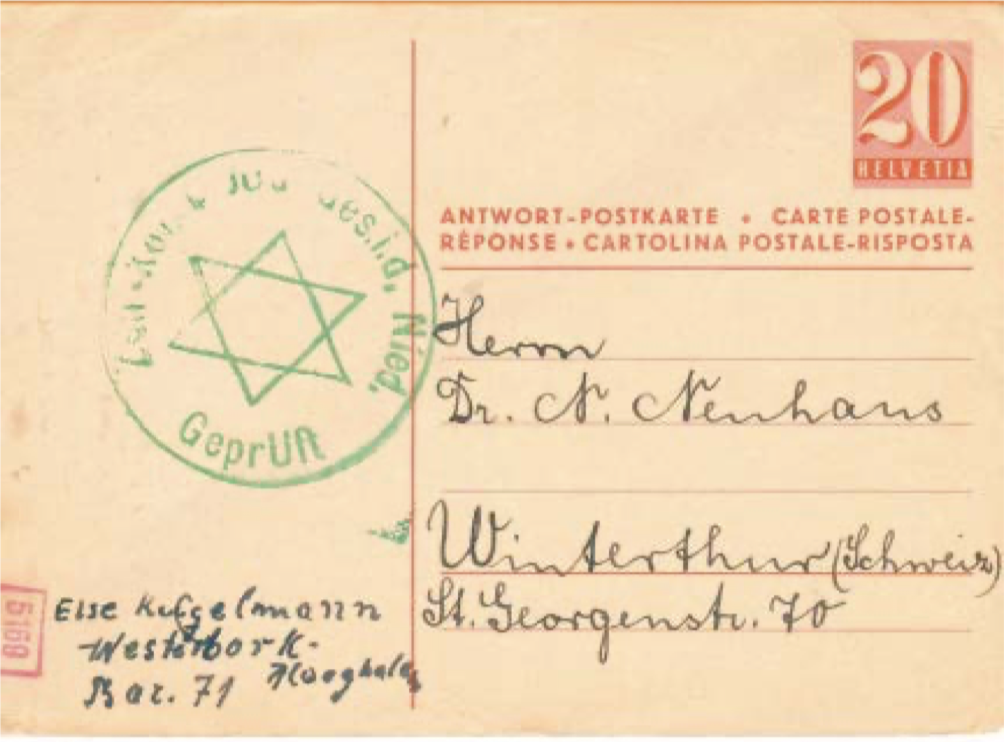 20
HELVETIA
ANTWORT-POSTKARTE • CARTE POSTALE-
RÉPONSE • CARTOLINA POSTALE-RISPOSTA
Ges.i.d. Nied.
Geprüft
Herrn
Dr. N. Neuhaus
Winterthur (Schweiz)
St. Georgenstr. 70
Else Kugelmann
Westerbork-
Hooghalen
Bar. 71
5168